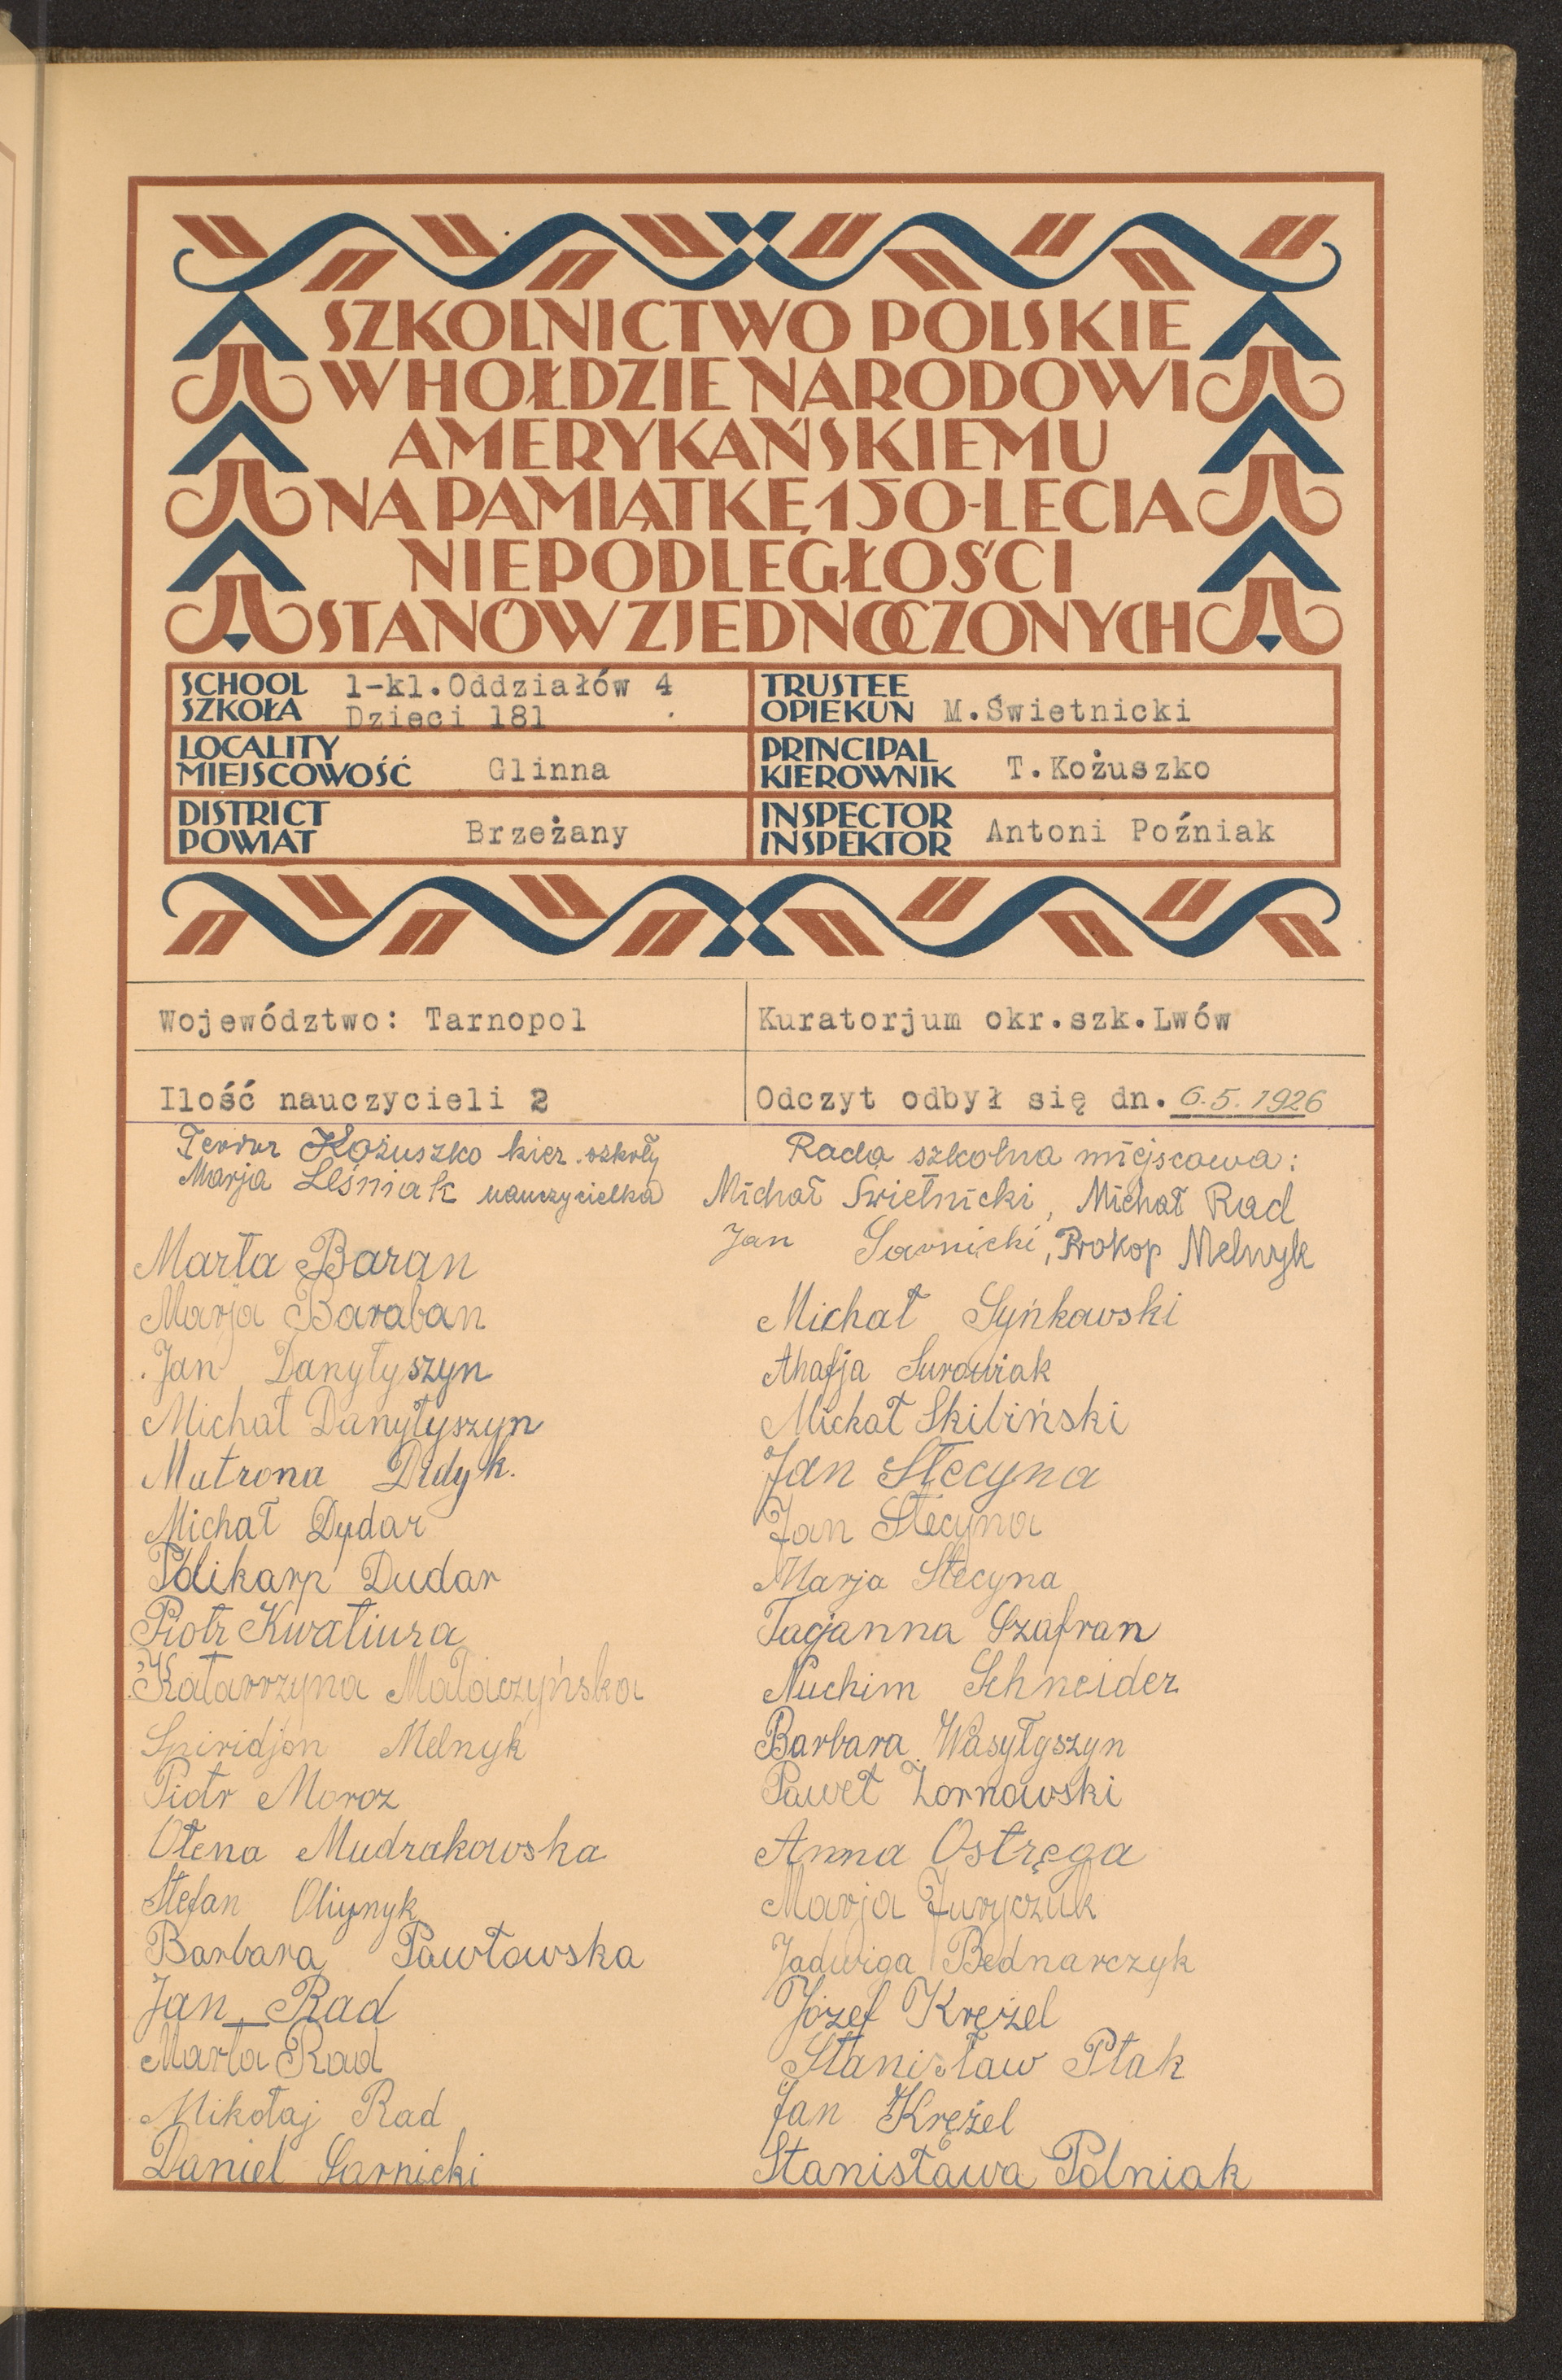 SZKOLNICTWO POLSKIE
W HOŁDZIE NARODOWI
AMERYKAŃSKIEMU
NA PAMIĄTKĘ 150-LECIA
NIEPODLEGŁOŚCI
STANÓW ZJEDNOCZONYCH
SCHOOL
SZKOŁA
1-kl.Oddziałów 4
Dzieci 181
TRUSTEE
OPIEKUN
M.Świetnicki
LOCALITY
MIEJSCOWOŚĆ
Glinna
PRINCIPAL
KIEROWNIK
T.Kożuszko
DISTRICT
POWIAT
Brzeżany
INSPECTOR
INSPEKTOR
Antoni Poźniak
Województwo: Tarnopol
Kuratorjum okr.szk.Lwów
Ilość nauczycieli 2
Odczyt odbył się dn. 6.5.1926
Kożuszko kier. szkoły
Marja Leśniak nauczycielka
Rada szkolna miejscowa:
Michał Świetnicki, Michał Rad
Jan Sarnicki, Prokop Melnyk
Marta Baran
Marja Baraban
Jan Danyłyszyn
Michał Danyłyszyn
Matrona Didyk.
Michał Dydar
Polikarp Dudar
Piotr Kwatiura
Katarzyna Małaczyńska
Spiridjon Melnyk
Piotr Moroz
Ołena Mudrakowska
Stefan Oliynyk
Barbara Pawłowska
Jan Rad
Marta Rad
Mikołaj Rad
Daniel Sarnicki
Michał Syńkowski
Ahafja Surowiak
Michał Skibiński
Jan Stecyna
Jan Stecyna
Marja Stecyna
Tacjanna Szafran
Nuchim Schneider
Barbara Wasyłyszyn
Paweł Żornowski
Anna Ostręga
Marja Juryczuk
Jadwiga Bednarczyk
Józef Krężel
Stanisław Ptak
Jan Krężel
Stanisława Polniak